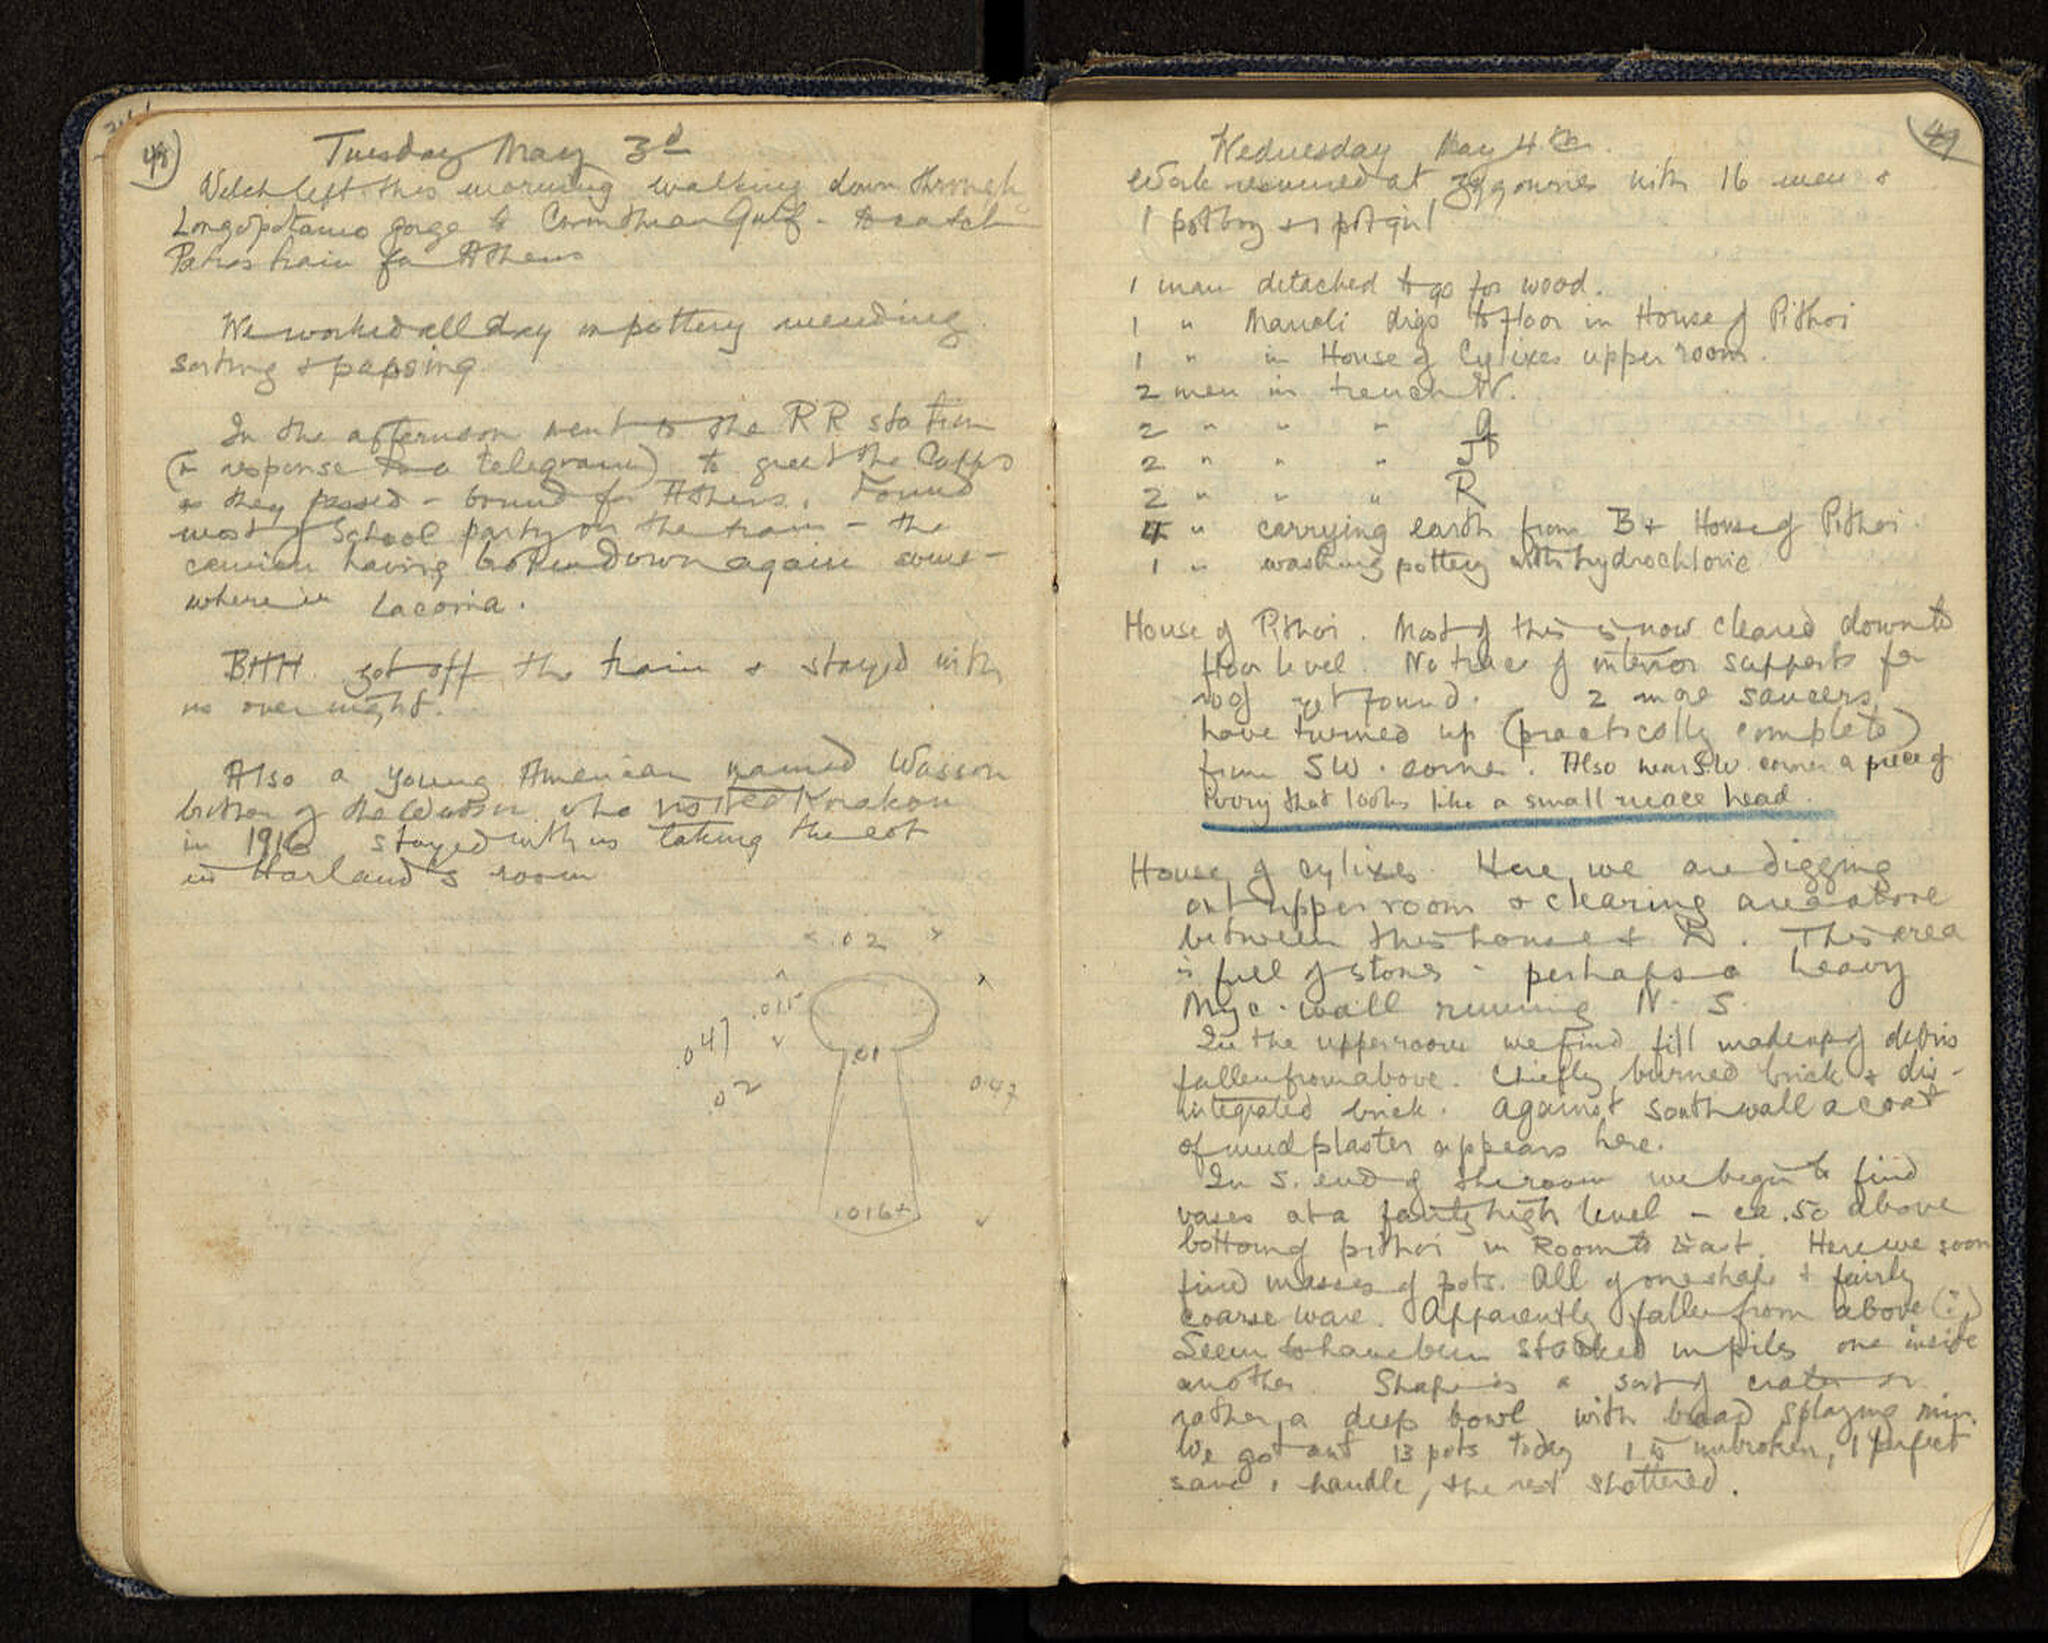 48
Tuesday May 3d
Welch left this morning walking down through
Longopotamo gorge to Corinthian Gulf - to catch
Patras train for Athens
We worked all day on pottery mending
sorting & papsing
In the afternoon went to the RR station
(in response to a telegram) to greet the Capps
as they passed - bound for Athens. Found
most of School party on the train - the
camion having broken down again some-
where in Laconia.
BHH. got off the train & stayed with
us over night.
Also a young American named Wasson
brother of the Wasson who visited Korakou
in 1916 stayed with us taking the cot
in Harland's room
.02
.015
.047
.01
.02
0.47
.016+
49
Wednesday May 4th.
Work resumed at Zygouries with 16 men &
1 potboy & 1 potgirl
1 man detached to go for wood.
1 " Manoli digs to floor in House of Pithoi
1 " in House of Cylixes upper room.
2 men in trench W.
2 " " " G
2 " " "
2 " " " R
4 " carrying earth from B + House of Pithoi.
1 " washing pottery with hydrochloric
House of Pithoi. Most of this is now cleared down to
floor level. No trace of interior supports for
roof yet found. 2 more saucers
have turned up (practically complete)
from SW. corner. Also near S.W. corner a piece of
ivory that looks like a small mace head.
House of Cylixes. Here we are digging
out upper room & clearing area above
between this house & B. This area
is full of stones - perhaps a heavy
Myc. wall running N - S.
In the upper room we find fill made up of debris
fallen from above. Chiefly burned brick & dis-
integrated brick. Against South wall a coat
of mud plaster appears here.
In S. end of the room we begin to find
vases at a fairly high level - ca .50 above
bottom of pithoi in Room to East. Here we soon
find masses of pots. All of one shape & fairly
coarse ware. Apparently fallen from above (?)
Seem to have been stacked in piles one inside
another. Shape is a sort of crater or
rather a deep bowl with broad splaying rim.
We got out 13 pots today 1 is unbroken, 1 perfect
save 1 handle, the rest shattered.